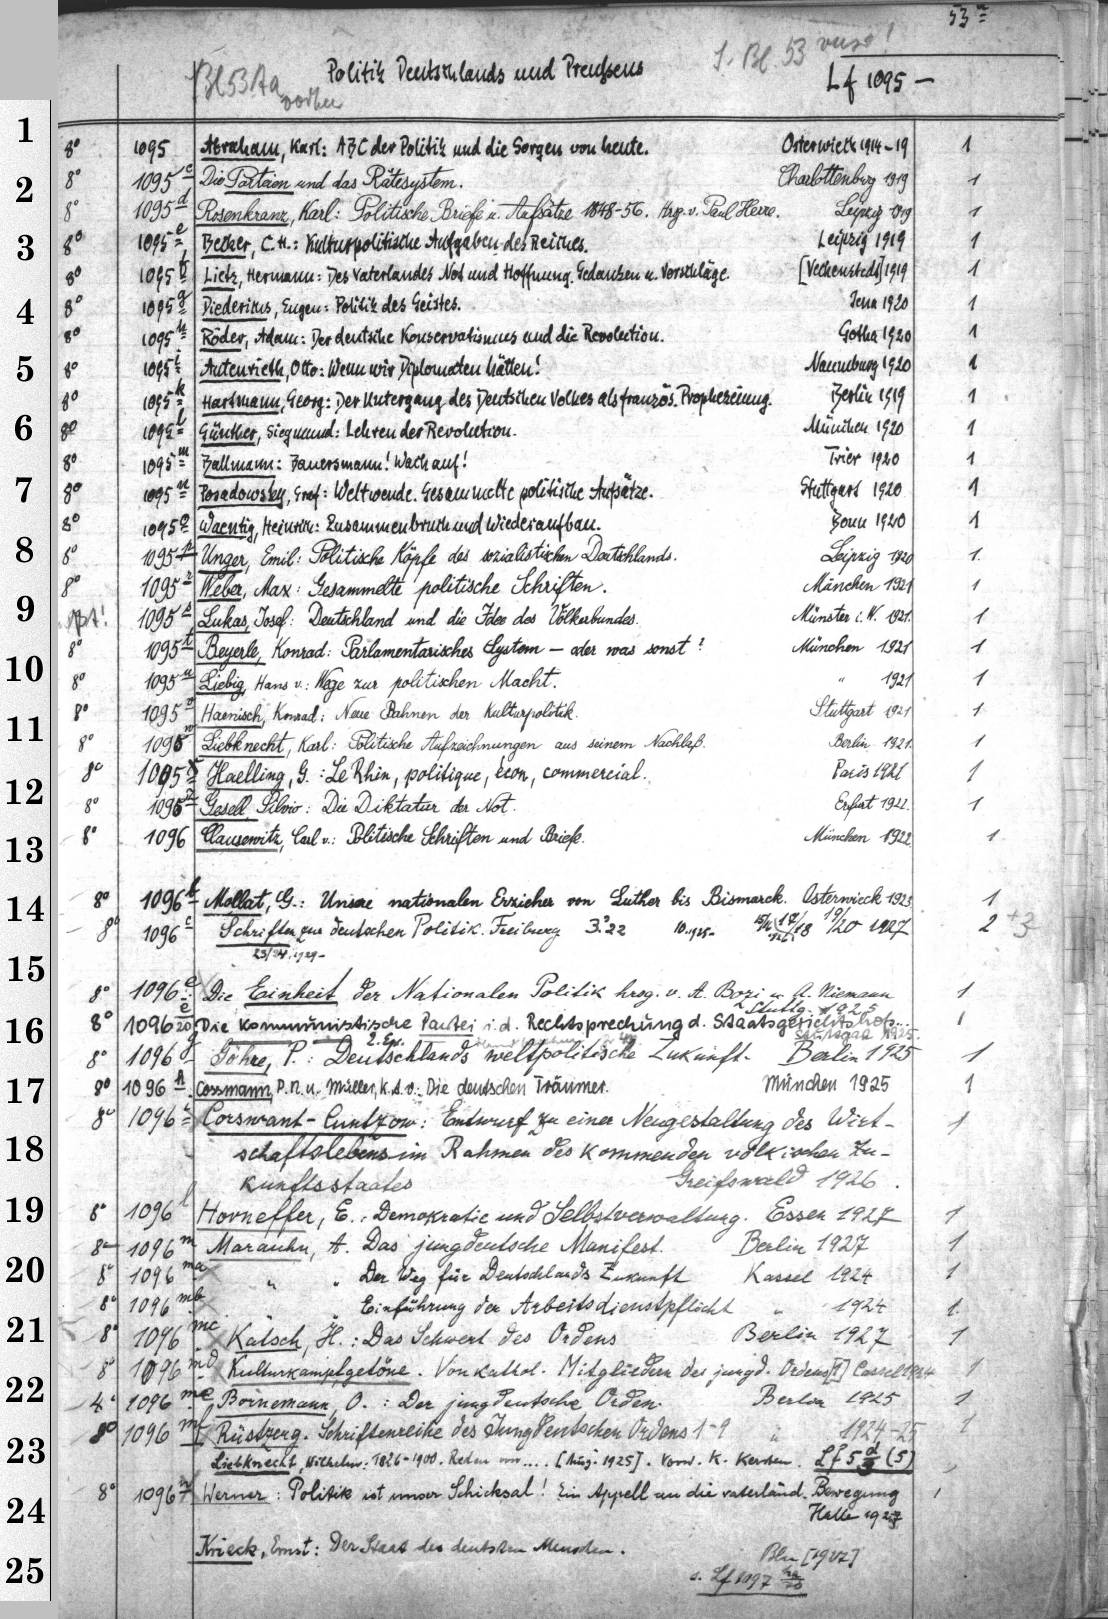 53ª
Bl 53 Aa vorher
Politik Deutschlands und Preußens
s. Bl. 53 verso!
Lf 1095 –
8° 1095 Abraham, Karl: ABC der Politik und die Sorgen von heute. Osterwieck 1914-19 1
8° 1095 c Die Parteien und das Rätesystem. Charlottenburg 1919 1
8° 1095 d Rosenkranz, Karl: Politische Briefe u. Aufsätze 1848-56. Hrg. v. Paul Herre. Leipzig 1919 1
8° 1095 e Becker, C. H.: Kulturpolitische Aufgaben des Reiches. Leipzig 1919 1
8° 1095 f Lietz, Hermann: Des Vaterlandes Not und Hoffnung. Gedanken u. Vorschläge. [Veckenstedt] 1919 1
8° 1095 g Diederichs, Eugen: Politik des Geistes. Jena 1920 1
8° 1095 h Röder, Adam: Der deutsche Konservatismus und die Revolution. Gotha 1920 1
8° 1095 i Autenrieth, Otto: Wenn wir Diplomaten hätten! Naumburg 1920 1
8° 1095 k Hartmann, Georg: Der Untergang des Deutschen Volkes als französ. Prophezeiung. Berlin 1919 1
8° 1095 l Günther, Siegmund: Lehren der Revolution. München 1920 1
8° 1095 m Ballmann: Bauersmann! Wach auf! Trier 1920 1
8° 1095 n Posadowsky, Graf: Weltwende. Gesammelte politische Aufsätze. Stuttgart 1920 1
8° 1095 o Waentig, Heinrich: Zusammenbruch und Wiederaufbau. Bonn 1920 1
8° 1095 p Unger, Emil: Politische Köpfe des sozialistischen Deutschlands. Leipzig 1920 1.
8° 1095 r Weber, Max: Gesammelte politische Schriften. München 1921 1
1095 s Lukas, Josef: Deutschland und die Idee des Völkerbundes. Münster i. W. 1921. 1
8° 1095 t Beyerle, Konrad: Parlamentarisches System – oder was sonst? München 1921 1
8° 1095 u Liebig, Hans v.: Wege zur politischen Macht. " 1921 1
8° 1095 v Haenisch, Konrad: Neue Bahnen der Kulturpolitik. Stuttgart 1921 1
8° 1095 w Liebknecht, Karl: Politische Aufzeichnungen aus seinem Nachlaß. Berlin 1921. 1
8° 1095 x Haelling, G.: Le Rhin, politique, écon, commercial. Paris 1921 1
8° 1095 z Gesell, Silvio: Die Diktatur der Not. Erfurt 1922. 1
8° 1096 Clausewitz, Carl v.: Politische Schriften und Briefe. München 1922. 1
8° 1096 b Mollat, G.: Unsere nationalen Erzieher von Luther bis Bismarck. Osterwieck 1923 1
8° 1096 c Schriften zur deutschen Politik. Freiburg 3.° 22 10. 1925- 17/18 19/20 1927 2 +3
23/24. 1929-
8° 1096 e Die Einheit der Nationalen Politik hrsg. v. A. Bozi u. A. Niemann 1
Stuttg. 1925
8° 1096 e/20 Die kommunistische Partei i. d. Rechtsprechung d. Staatsgerichtshof... 1
2. Ex. Stuttgart 1925.
8° 1096 g Göhre, P.: Deutschlands weltpolitische Zukunft. Berlin 1925 1
8° 1096 h Cossmann, P. N. u. Müller, K. A. v.: Die deutschen Träumer. München 1925 1
8° 1096 i Corswant-Cuntzow: Entwurf zu einer Neugestaltung des Wirt- 1
schaftslebens im Rahmen des kommenden völkischen Zu-
kunftsstaates Greifswald 1926.
8° 1096 l Hovneffer, E.: Demokratie und Selbstverwaltung. Essen 1927 1
8° 1096 m Maraun, A. Das jungdeutsche Manifest. Berlin 1927 1
8° 1096 ma " " Der Weg für Deutschlands Zukunft Kassel 1924 1
8° 1096 mb " " Einführung der Arbeitsdienstpflicht " 1924 1.
8° 1096 mc Katsch, H.: Das Schwert des Ordens Berlin 1927 1
8° 1096 md Kulturkampfgetöne. Von kathol. Mitgliedern des jungd. Ordens [!] Cassel 1924 1
4° 1096 me Bornemann, O.: Der jungdeutsche Orden. Berlin 1925 1
8° 1096 mf Rüstzeug. Schriftenreihe des Jungdeutschen Ordens 1-9 " 1924-25 1
Liebknecht, Wilhelm: 1826-1900. Reden von .... [Aug. 1925]. Vorw. K. Kersten. Lf 5 d/3 (5)
8° 1096 n Werner: Politik ist unser Schicksal! Ein Appell an die vaterländ. Bewegung 1
Halle 1927
Krieck, Ernst: Der Staat des deutschen Menschen. Bln [1927]
s. Lf 1097
1
2
3
4
5
6
7
8
9
10
11
12
13
14
15
16
17
18
19
20
21
22
23
24
25